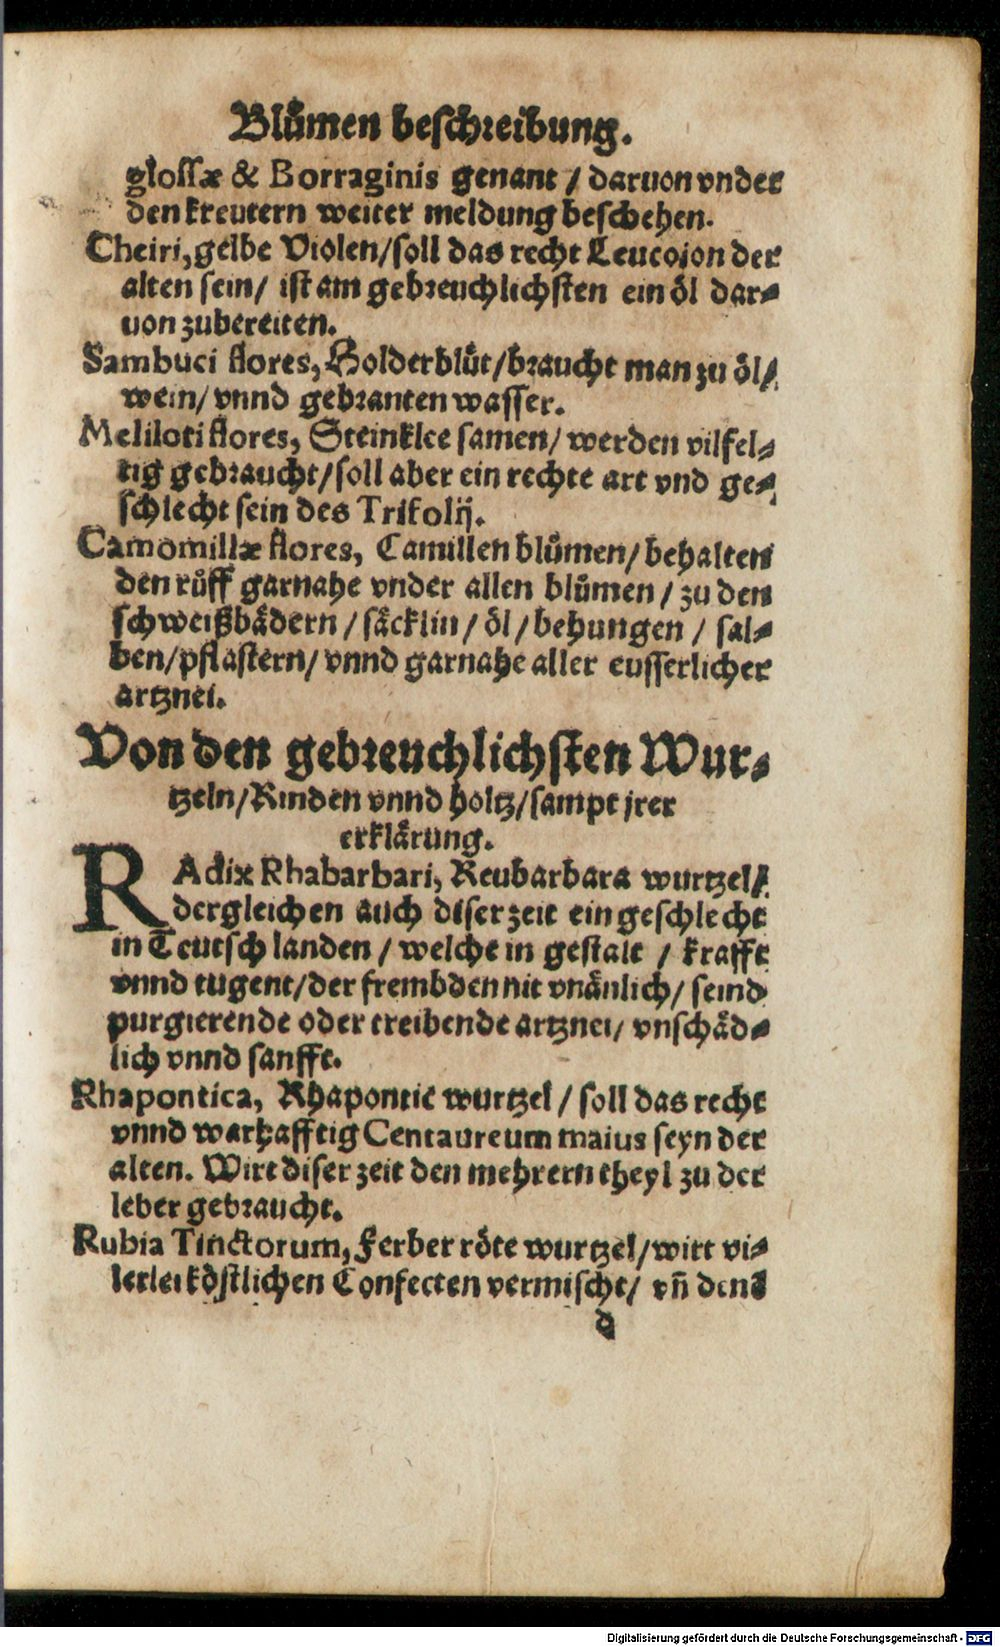 Blůmen beschreibung.
glossæ & Borraginis genant / daruon vnder
den kreutern weiter meldung beschehen.
Cheiri, gelbe Violen/soll das recht Leucoion der
alten sein/ ist am gebreuchlichsten ein öl dar-
uon zubereiten.
Sambuci flores, Holderblůt/braucht man zu öl/
wein/ vnnd gebranten wasser.
Meliloti flores, Steinklee samen/ werden vilfel-
tig gebraucht/soll aber ein rechte art vnd ge-
schlecht sein des Trifolij.
Camomillæ flores, Camillen blůmen/behalten
den růff garnahe vnder allen blůmen / zu den
schweißbädern / säcklin / öl / behungen / sal-
ben/pflastern/ vnnd garnahe aller eusserlicher
artznei.
Von den gebreuchlichsten Wur-
tzeln/Rinden vnnd holtz/sampt jrer
erklärung.
RAdix Rhabarbari, Reubarbara wurtzel/
dergleichen auch diser zeit ein geschlecht
in Teutsch landen / welche in gestalt / krafft
vnnd tugent/der frembden nit vnänlich/ seind
purgierende oder treibende artznei/ vnschäd-
lich vnnd sanfft.
Rhapontica, Rhapontic wurtzel / soll das recht
vnnd warhafftig Centaureum maius seyn der
alten. Wirt diser zeit den mehrern theyl zu der
leber gebraucht.
Rubia Tinctorum, Ferber röte wurtzel/wirt vi-
lerlei köstlichen Confecten vermischt/ vñ den
d
Digitalisierung gefördert durch die Deutsche Forschungsgemeinschaft - DFG